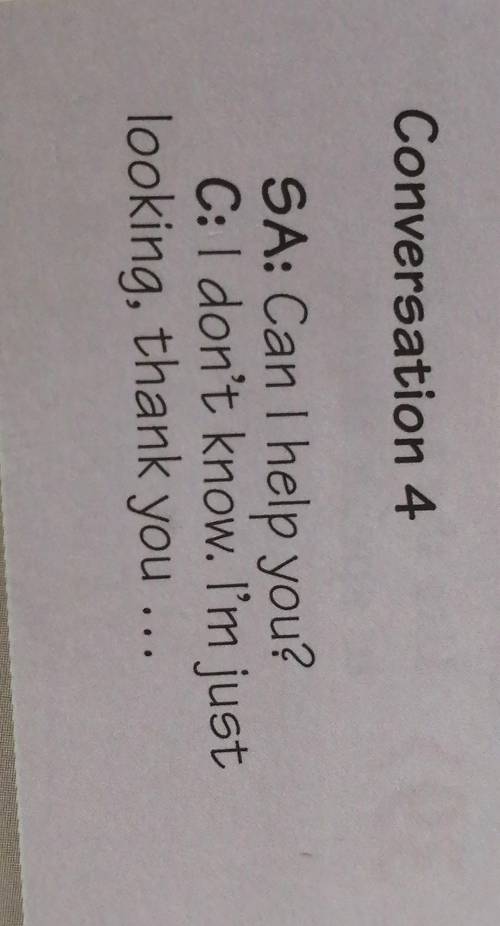 Conversation 4
SA: Can I help you?
C: I don't know. I'm just
looking, thank you ...